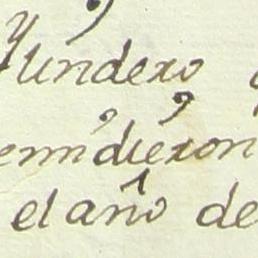 y
undero
enmdieron
el año de